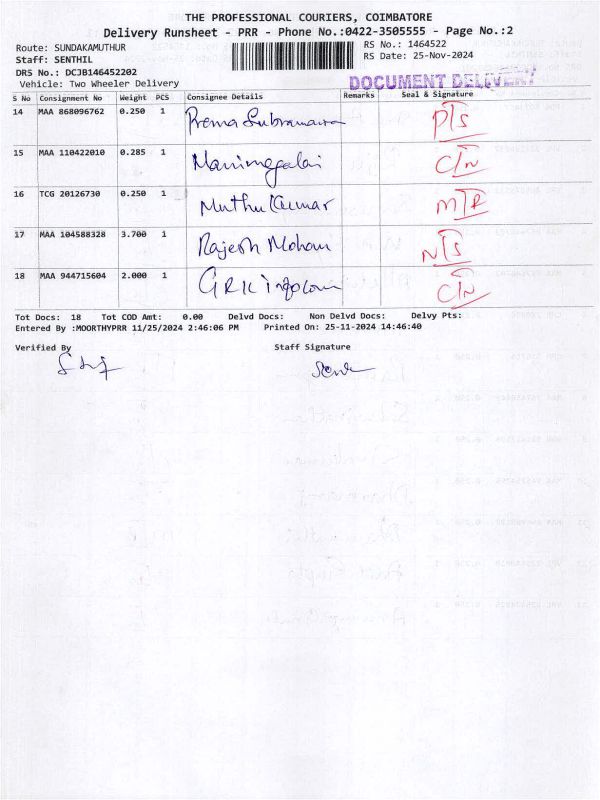 THE PROFESSIONAL COURIERS, COIMBATORE
Delivery Runsheet - PRR - Phone No.:0422-3505555 - Page No.:2
Route: SUNDAKAMUTHUR RS No.: 1464522
Staff: SENTHIL RS Date: 25-Nov-2024
DRS No.: DCJB146452202
Vehicle: Two Wheeler Delivery DOCUMENT DELIVERY
S No Consignment No Weight PCS Consignee Details Remarks Seal & Signature
14 MAA 868096762 0.250 1 Prema
15 MAA 110422010 0.285 1 Manimegalai C/N
16 TCG 20126730 0.250 1 Muthu Kumar
17 MAA 104588328 3.700 1 Rajesh Mohan N/S
18 MAA 944715604 2.000 1 C/N
Tot Docs: 18 Tot COD Amt: 0.00 Delvd Docs: Non Delvd Docs: Delvy Pts:
Entered By :MOORTHYPRR 11/25/2024 2:46:06 PM Printed On: 25-11-2024 14:46:40
Verified By Staff Signature